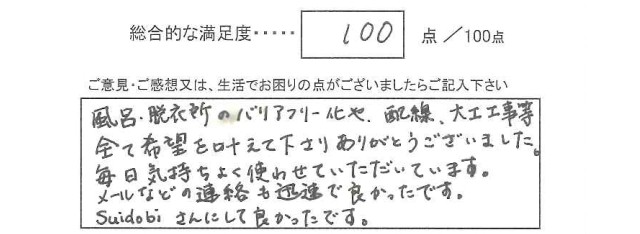 総合的な満足度・・・・・ 100 点／100点
ご意見・ご感想又は、生活でお困りの点がございましたらご記入下さい
風呂、脱衣所のバリアフリー化や、配線、大工工事等
全て希望を叶えて下さりありがとうございました。
毎日気持ちよく使わせていただいています。
メールなどの連絡も迅速で良かったです。
Suidobiさんにして良かったです。